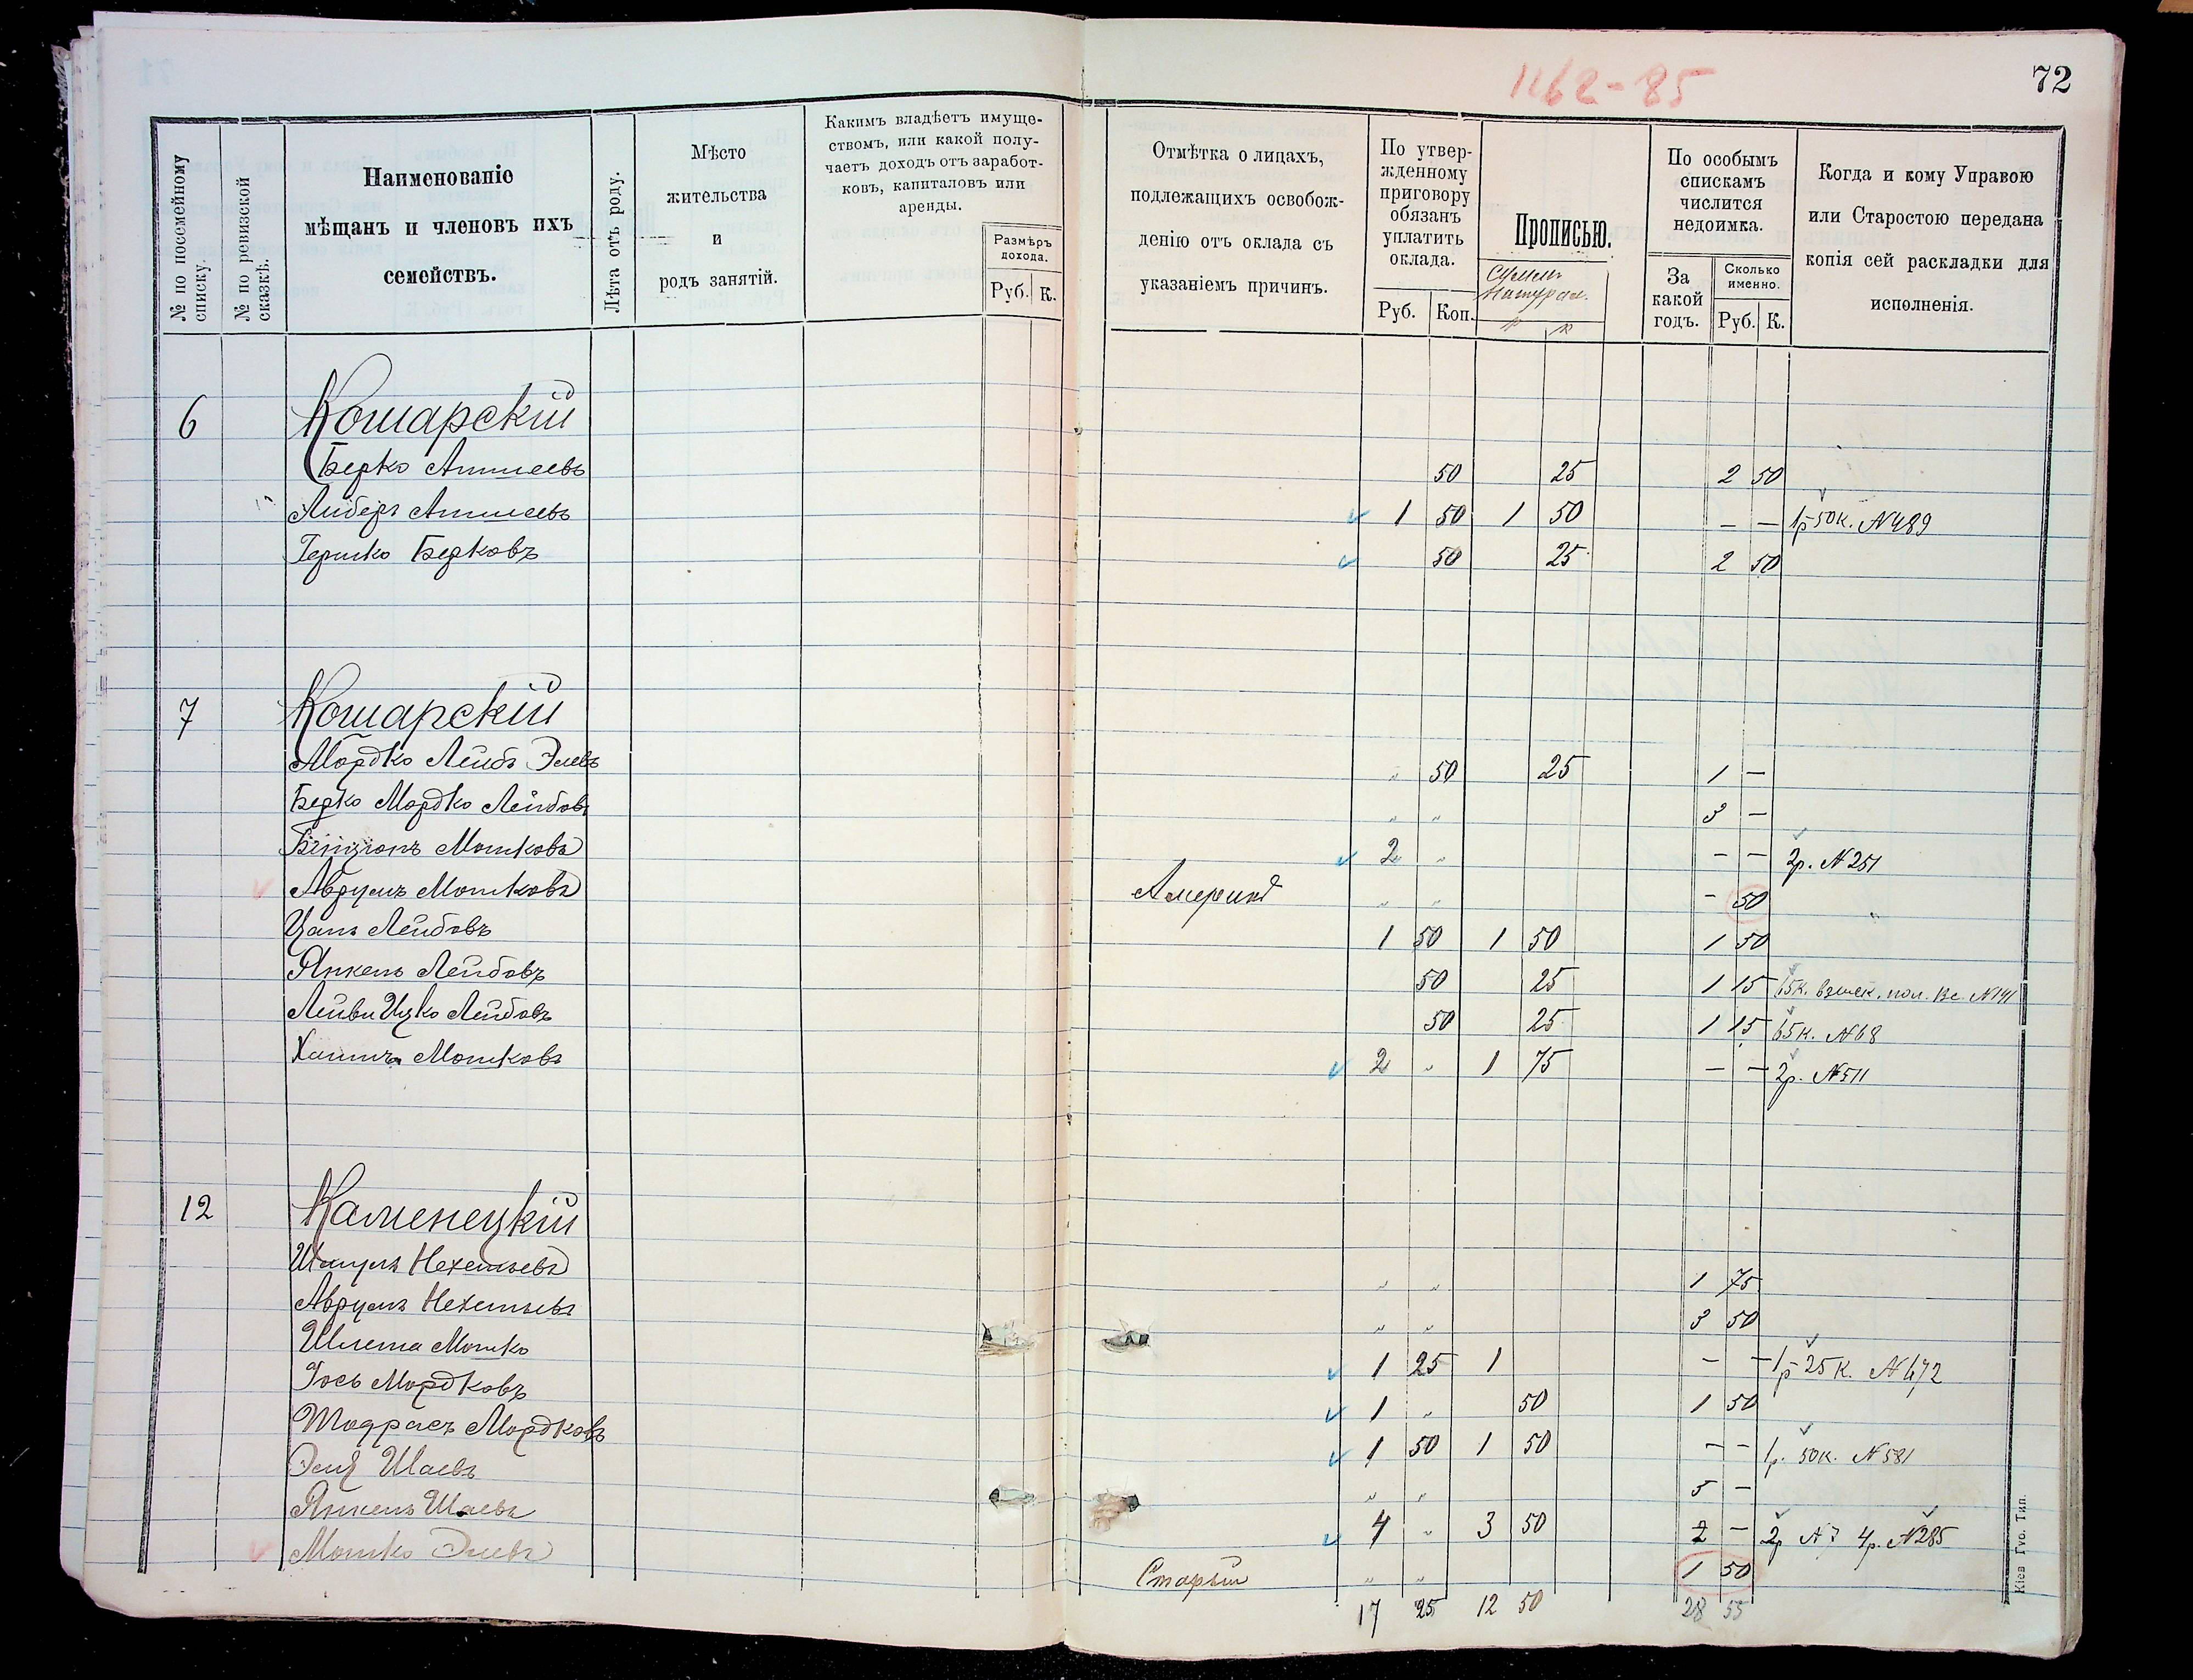 1162-85
72
№ по посемейному списку.
№ по ревизской сказкѣ.
Наименованіе
мѣщанъ и членовъ ихъ
семействъ.
Лѣта отъ роду.
Мѣсто
жительства
и
родъ занятій.
Какимъ владѣетъ имуще-
ствомъ, или какой полу-
чаетъ доходъ отъ заработ-
ковъ, капиталовъ или
аренды.
Размѣръ
дохода.
Руб. К.
Отмѣтка о лицахъ,
подлежащихъ освобож-
денію отъ оклада съ
указаніемъ причинъ.
По утвер-
жденному
приговору
обязанъ
уплатить
оклада.
Руб. Коп.
Прописью.
По особымъ
спискамъ
числится
недоимка.
За
какой
годъ.
Сколько
именно.
Руб. К.
Когда и кому Управою
или Старостою передана
копія сей раскладки для
исполненія.
6 Кошарскій
Берко Аншеевъ 50 25 2 50
Либеръ Аншеевъ 1 50 1 50 – – 1р 50к. №489
Гершко Берковъ 50 25 2 50
7 Кошарскій
Мордко Лейбъ Элевъ " 50 25 1 –
Берко Мордко Лейбовъ " " 3 –
Бенціонъ Мошковъ 2 " – – 2р. №251
Аврумъ Мошковъ " " - 50
Лейбовъ 1 50 1 50 1 50
Янкель Лейбовъ 50 25 1 15 65к. №141
Лейви Ицко Лейбовъ 50 25 1 15 65к. №68
Хаимъ Мошковъ 2 " 1 75 – – 2р. №511
12 Каменецкій
Шмуль Нехемьевъ " " 1 75
Аврумъ Нехемьевъ " " 3 50
Шлема Мошко 1 25 1 – – 1р 25к. №472
Іось Мордковъ 1 " 50 1 50
Тодресъ Мордковъ 1 50 1 50 – – 1р. 50к. №581
Шаевъ " " 5 –
Янкель Шаевъ 4 " 3 50 2 – 2р №7 4р. №285
Мошко Элевъ Старый " " 1 50
17 25 12 50 28 55
Кіев Гуо. Тип.